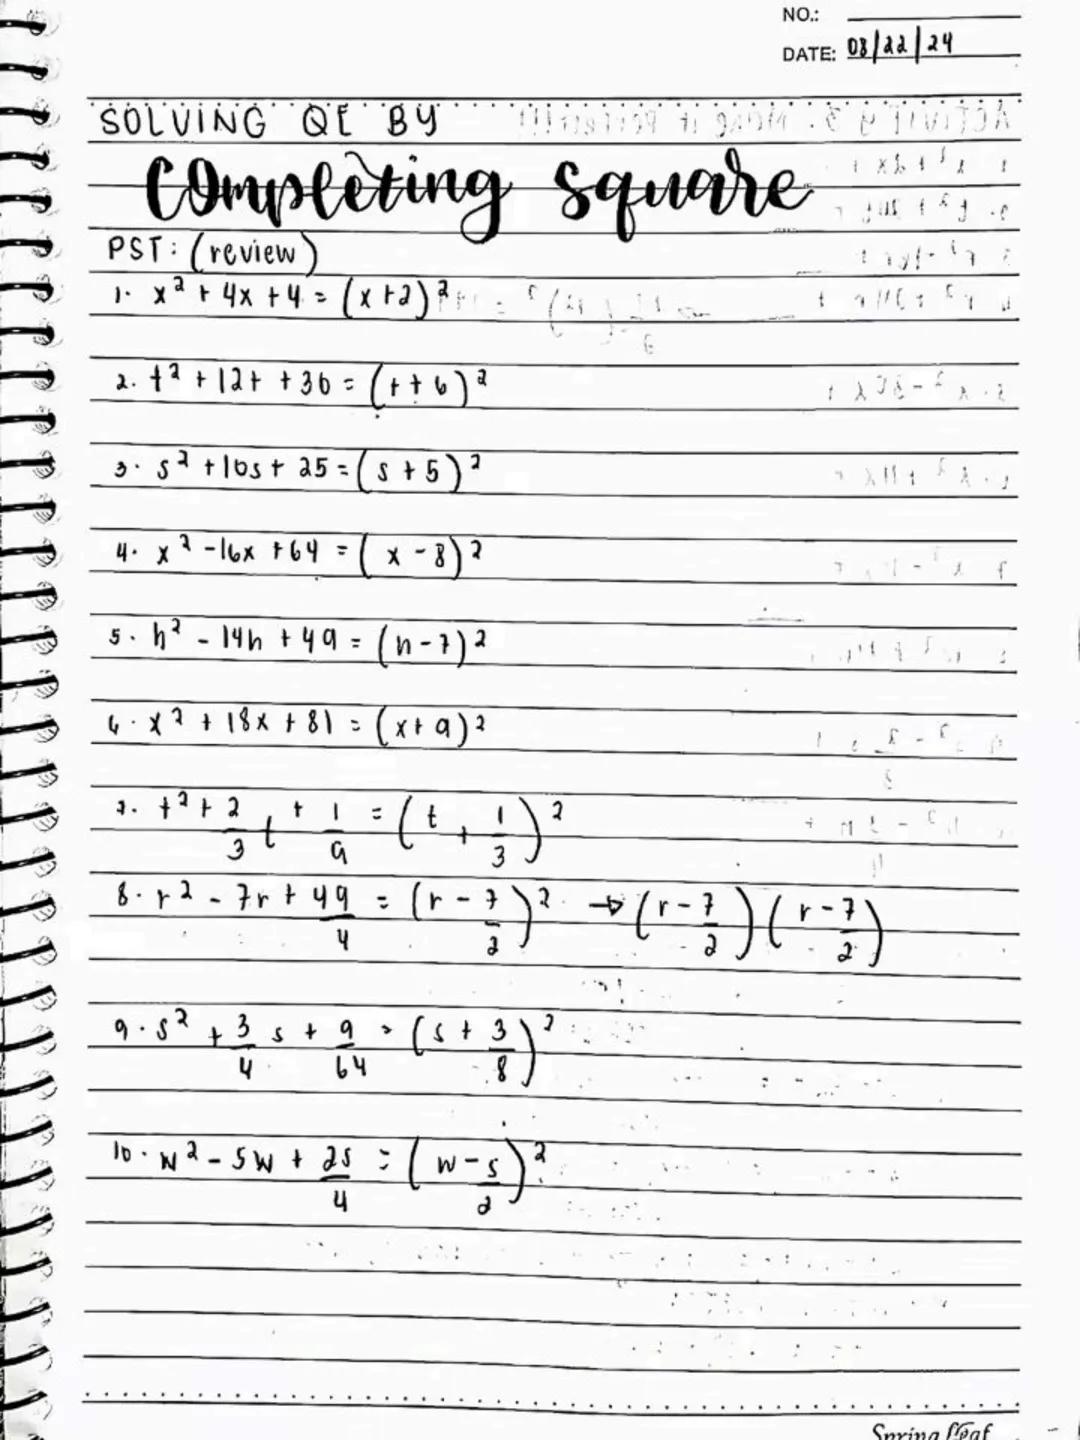 NO.:
DATE: 08/22/24
SOLVING QE BY
Completing square
PST: (review)
1. x² + 4x + 4 = (x+2)²
2. t² + 12t + 36 = (t+6)²
3. s² + 10s + 25 = (s+5)²
4. x² - 16x + 64 = (x - 8)²
5. h² - 14h + 49 = (h-7)²
6. x² + 18x + 81 = (x+9)²
7. t² + 2/3 t + 1/9 = (t + 1/3)²
8. r² - 7r + 49/4 = (r - 7/2)² → (r - 7/2)(r - 7/2)
9. s² + 3/4 s + 9/64 = (s + 3/8)²
10. w² - 5w + 25/4 = (w - 5/2)²
Spring Leaf